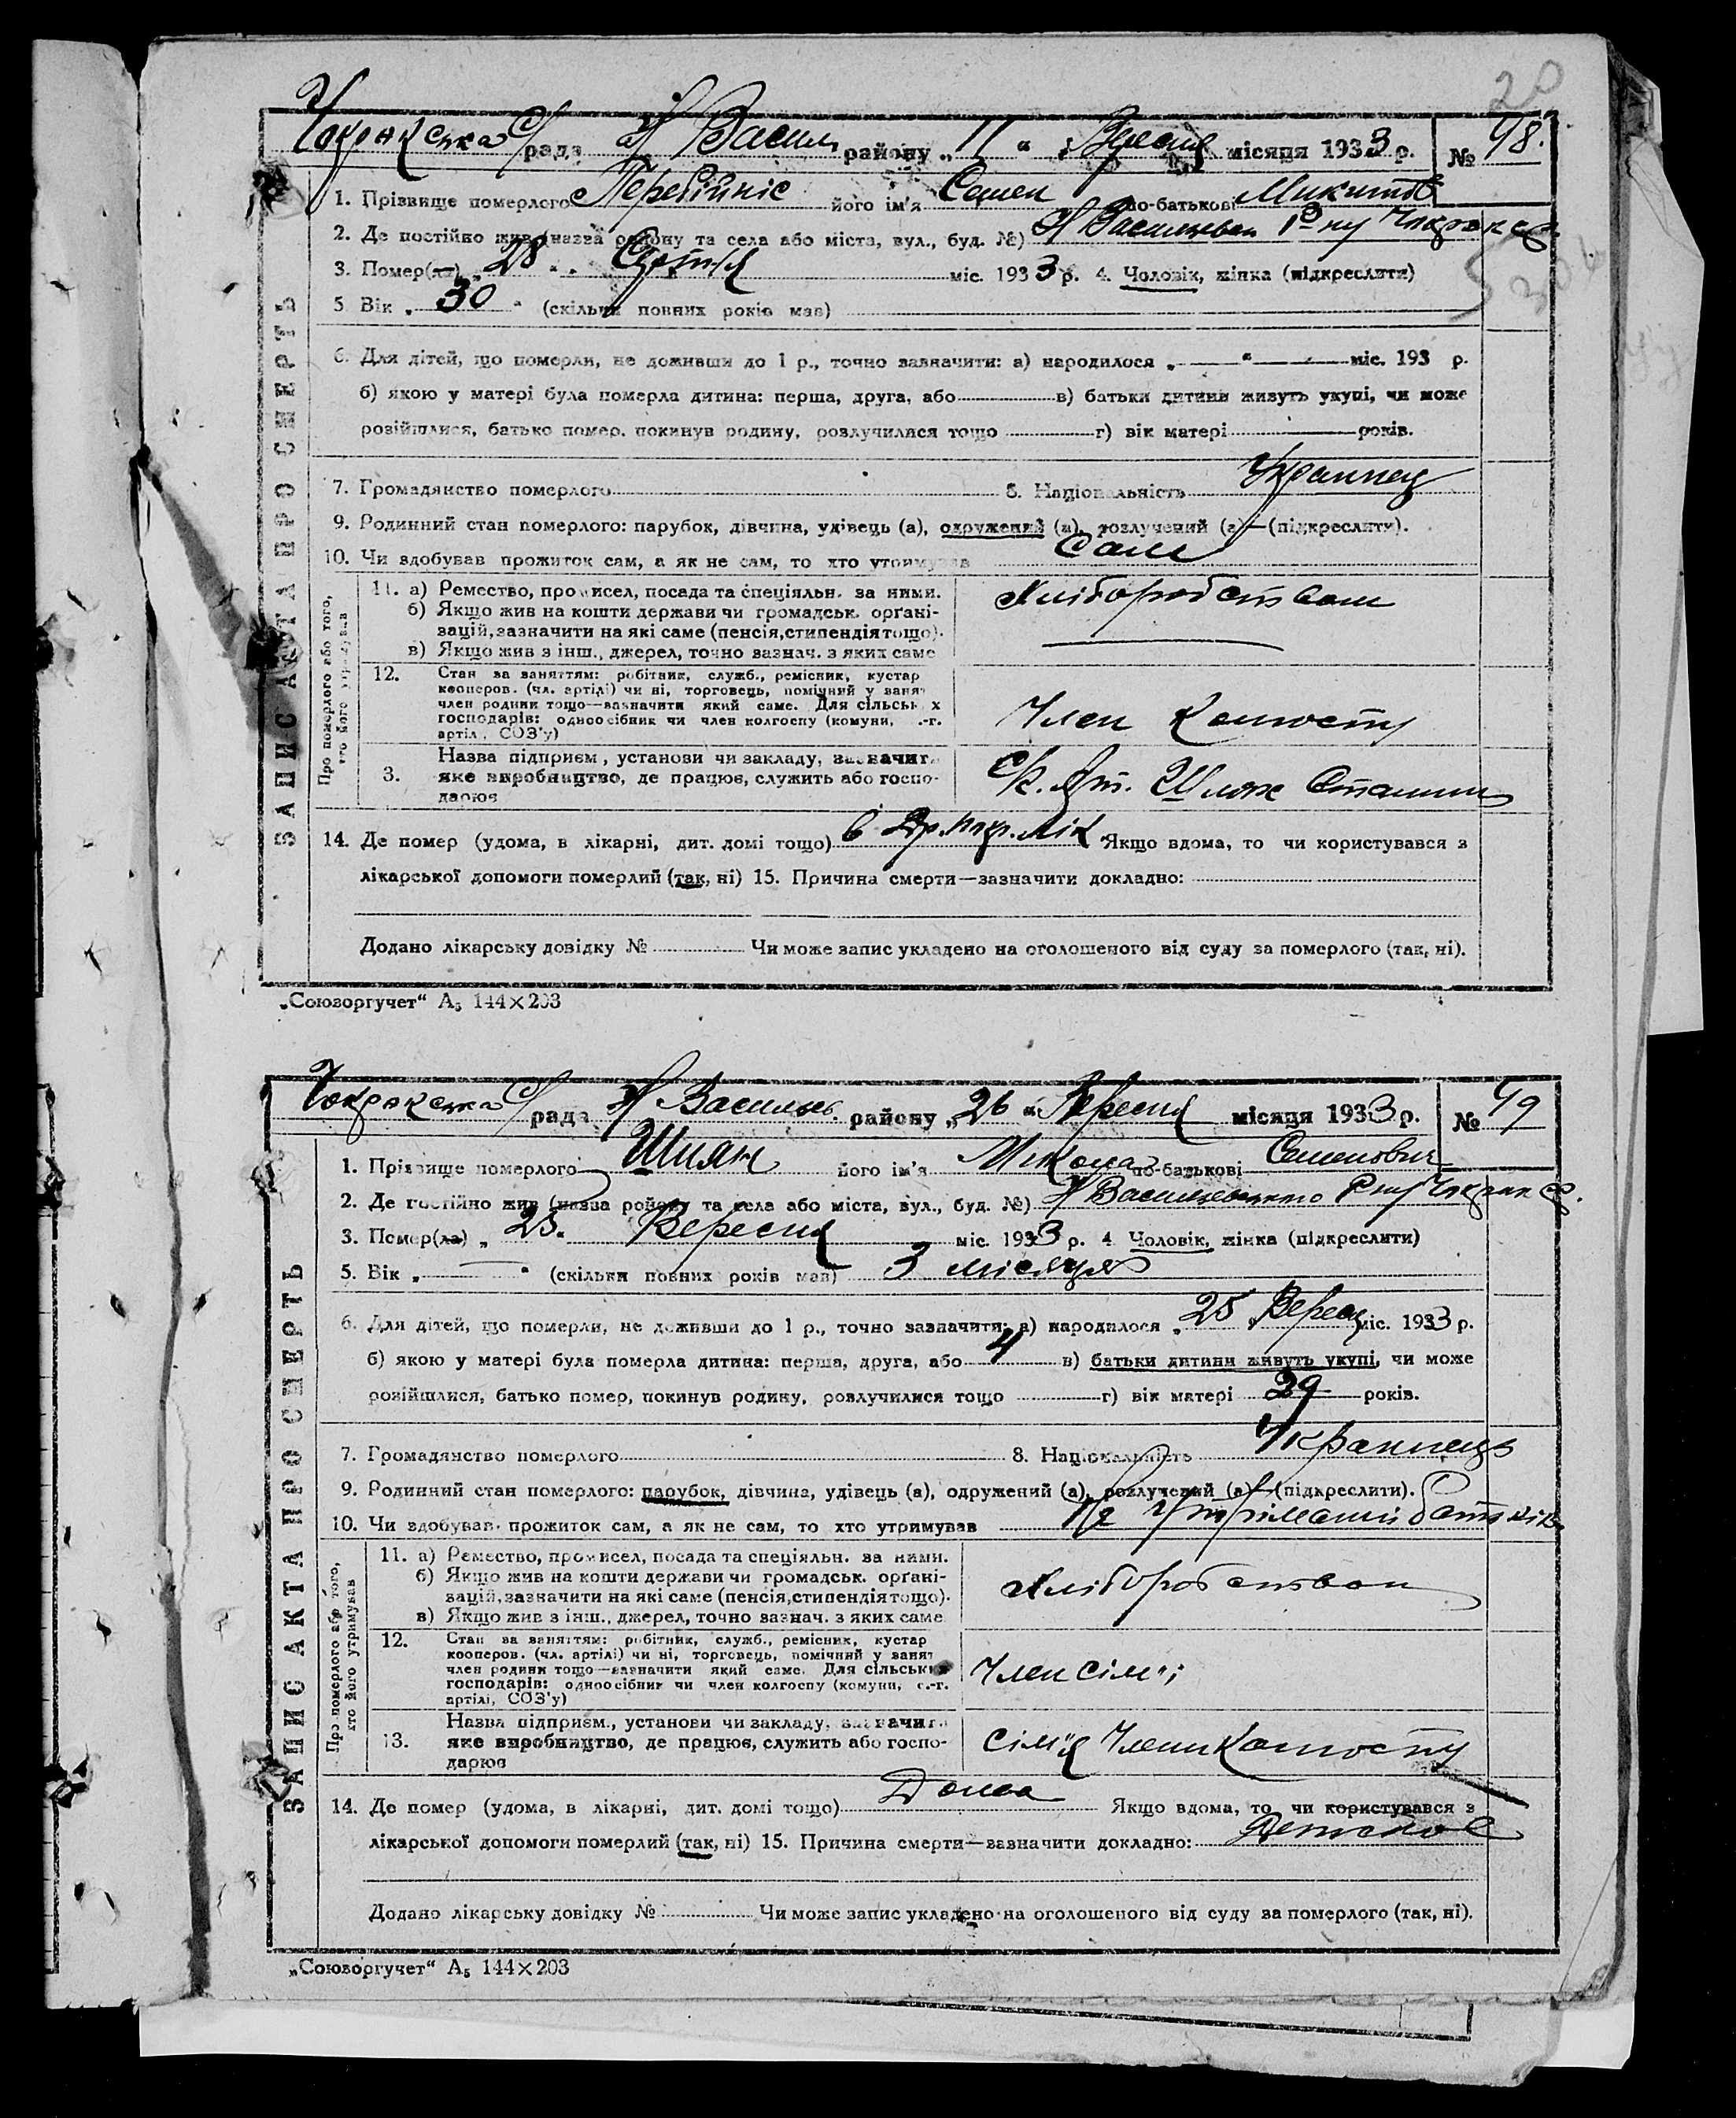 20
Чокракська с/рада Н Васил району „11“ Вересня місяця 1933 р. № 48.
1. Прізвище померлого Перебийніс його ім'я Семен по-батькові Микитов
2. Де постійно жив (назва району та села або міста, вул., буд. №) Н Васильевськ Р-ну Чокрак ср
3. Помер(ла) „28“ міс. 1933 р. 4. Чоловік, жінка (підкреслити)
5 Вік „30“ (скільки повних років мав)
6. Для дітей, що померли, не доживши до 1 р., точно зазначити: а) народилося „ — “ — міс. 193 р.
б) якою у матері була померла дитина: перша, друга, або в) батьки дитини живуть укупі, чи може
розійшлися, батько помер, покинув родину, розлучилися тощо г) вік матері років.
7. Громадянство померлого 8. Національність Українец
9. Родинний стан померлого: парубок, дівчина, удівець (а), одружений (а), розлучений (а)—(підкреслити).
10. Чи здобував прожиток сам, а як не сам, то хто утримував Сам
11. а) Ремество, промисел, посада та спеціяльн. за ними.
б) Якщо жив на кошти держави чи громадськ. орґані-
зацій, зазначити на які саме (пенсія, стипендія тощо).
в) Якщо жив з інш., джерел, точно зазнач. з яких саме
Хліборобством
12. Стан за заняттям: робітник, служб., ремісник, кустар
кооперов. (чл. артілі) чи ні, торговець, помічний у занят
член родини тощо—зазначити який саме. Для сільських
господарів: одноосібник чи член колгоспу (комуни, с.-г.
артілі, СОЗ'у)
Член Колгоспу
3. Назва підприєм., установи чи закладу, зазначит.
яке виробництво, де працює, служить або госпо-
дарює
С/г. Арт. Шлях Сталина
14. Де помер (удома, в лікарні, дит. домі тощо) в Якщо вдома, то чи користувався з
лікарської допомоги померлий (так, ні) 15. Причина смерти—зазначити докладно:
Додано лікарську довідку № Чи може запис укладено на оголошеного від суду за померлого (так, ні).
ЗАПИС АКТА ПРО СМЕРТЬ
Про померлого або того,
хто його утримував
„Союзоргучет“ А₅ 144×203
Чокракська с/рада Н Васильев. району „26“ Вересня місяця 1933 р. № 49
1. Прізвище померлого Шиян його ім'я Микола по-батькові Семенович
2. Де постійно жив (назва району та села або міста, вул., буд. №) Н Васильевського Р-ну Чокрак ср.
3. Помер(ла) „25. Вересня міс. 1933 р. 4 Чоловік, жінка (підкреслити)
5. Вік „ — “ (скільки повних років мав) 3 місяця
6. Для дітей, що померли, не доживши до 1 р., точно зазначити: а) народилося „25 Верес міс. 1933 р.
б) якою у матері була померла дитина: перша, друга, або 4 в) батьки дитини живуть укупі, чи може
розійшлися, батько помер, покинув родину, розлучилися тощо г) вік матері 29 років.
7. Громадянство померлого 8. Національність Українець
9. Родинний стан померлого: парубок, дівчина, удівець (а), одружений (а), розлучений (а)—(підкреслити).
10. Чи здобував прожиток сам, а як не сам, то хто утримував На утриманні батьків
11. а) Ремество, промисел, посада та спеціяльн. за ними.
б) Якщо жив на кошти держави чи громадськ. орґані-
зацій, зазначити на які саме (пенсія, стипендія тощо).
в) Якщо жив з інш., джерел, точно зазнач. з яких саме
Хліборобством
12. Стан за заняттям: робітник, служб., ремісник, кустар
кооперов. (чл. артілі) чи ні, торговець, помічний у занят
член родини тощо—зазначити який саме. Для сільських
господарів: одноосібник чи член колгоспу (комуни, с.-г.
артілі, СОЗ'у)
Член сім'ї
13. Назва підприєм., установи чи закладу, зазначити
яке виробництво, де працює, служить або госпо-
дарює
Сім'я Члени Колгоспу
14. Де помер (удома, в лікарні, дит. домі тощо) Дома Якщо вдома, то чи користувався з
лікарської допомоги померлий (так, ні) 15. Причина смерти—зазначити докладно: Детское
Додано лікарську довідку № Чи може запис укладено на оголошеного від суду за померлого (так, ні).
ЗАПИС АКТА ПРО СМЕРТЬ
Про померлого або того,
хто його утримував
„Союзоргучет“ А₅ 144×203